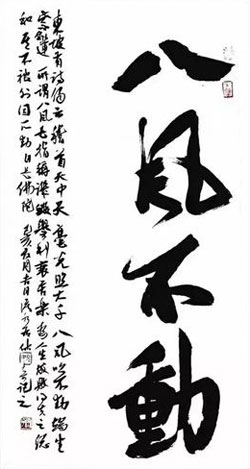 八風不動
東坡有詩偈云稽首天中天毫光照大千八風吹不動端坐
紫金蓮所謂八風者指稱譏毀譽利衰苦樂為人生成敗得失之總
和不被外因所動自是佛陀記之